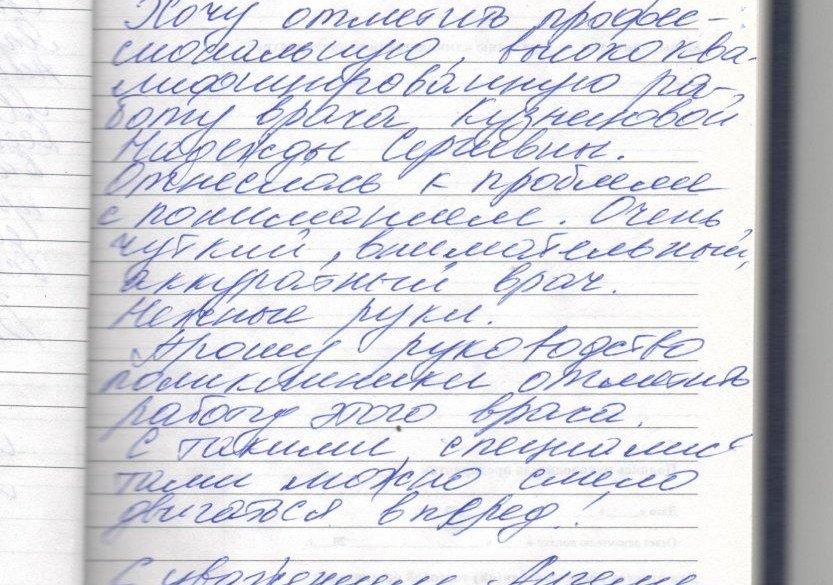 Хочу отметить профес-
сиональную, высококва-
лифицированную ра-
боту врача Кузнецовой
Надежды Сергеевны.
Отнеслась к проблеме
с пониманием. Очень
чуткий, внимательный,
аккуратный врач.
Нежные руки.
Прошу руководство
поликлиники отметить
работу этого врача.
С такими специалис-
тами можно смело
двигаться вперед!
С уважением